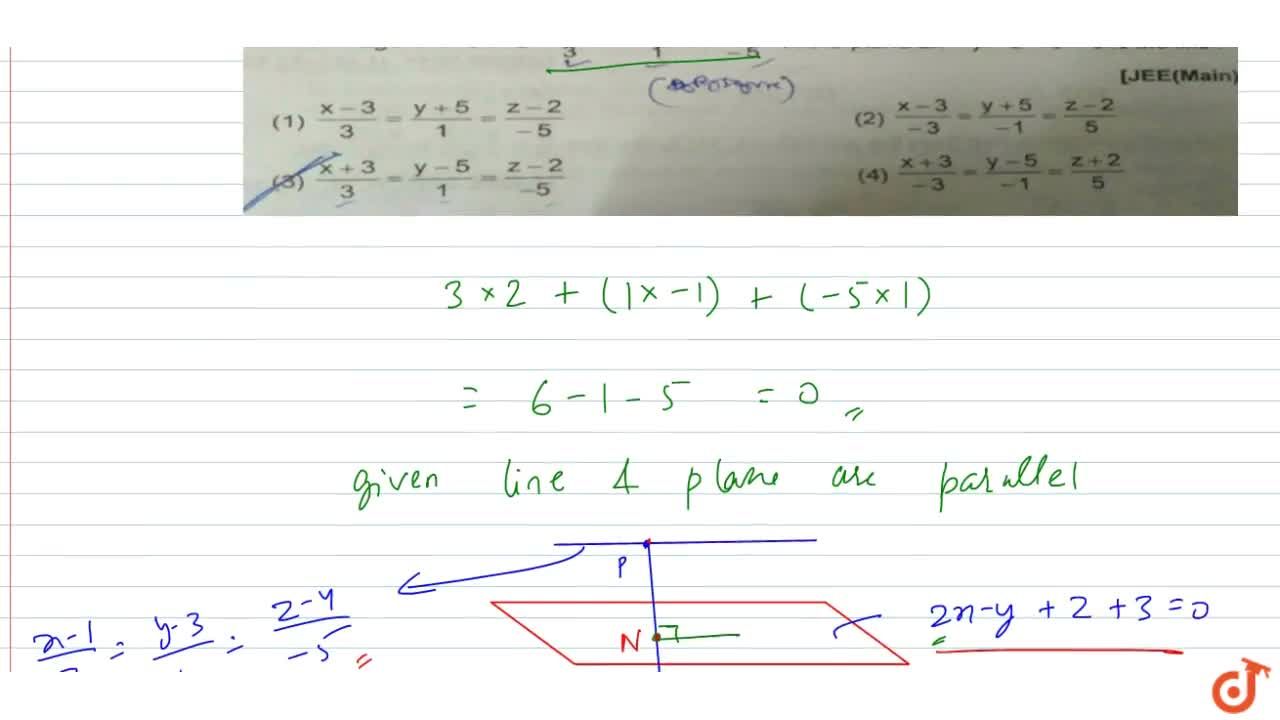 3 1 -5
[JEE(Main)
(1) x-3/3 = y+5/1 = z-2/-5
(2) x-3/-3 = y+5/-1 = z-2/5
(3) x+3/3 = y-5/1 = z-2/-5
(4) x+3/-3 = y-5/-1 = z+2/5
3×2 + (1×-1) + (-5×1)
= 6-1-5 = 0
given line & plane are parallel
P
x-1 = y-3 = z-4/-5
N
2x-y+z+3=0